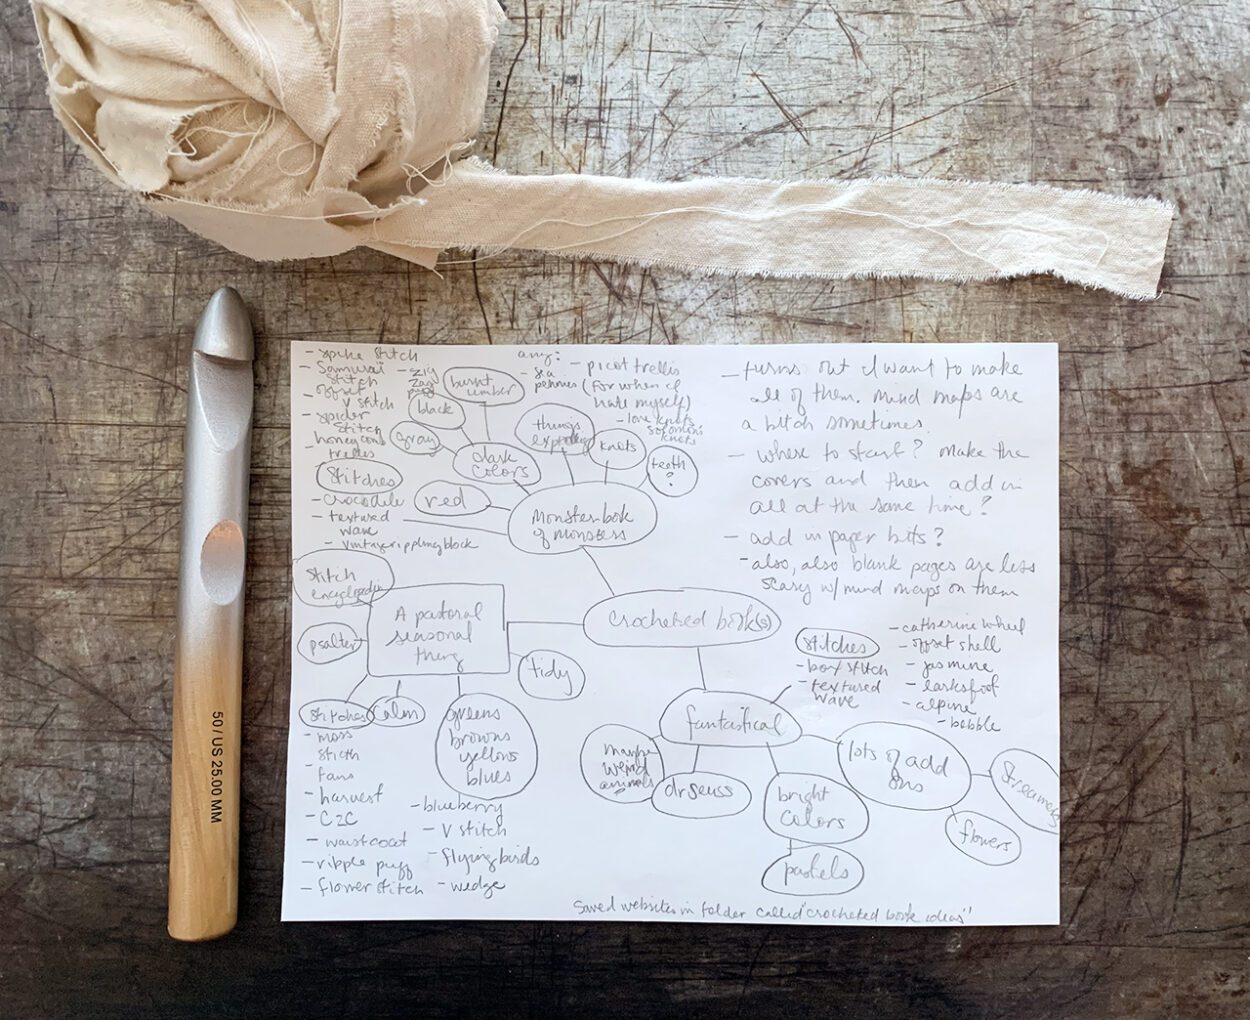 - spike stitch
- Samurai
stitch
- offset
V stitch
- spider
stitch
- honeycomb
trellis
stitches
- crocodile
- textured
wave
- vintage rippling block
- zig
zag
puff
any:
- sea
pennies
- picot trellis
(for when I
hate myself)
- love knots
solomon's
knots
burnt
umber
black
gray
dark
colors
red
things
exploding
knots
teeth
?
Monster book
of monsters
- turns out I want to make
all of them. mind maps are
a bitch sometimes.
- where to start? make the
covers and then add in
all at the same time?
- add in paper bits?
- also, also blank pages are less
scary w/ mind maps on them
stitch
encyclopedia
psalter
A pastoral
seasonal
thing
tidy
crocheted book(s)
stitches
calm
greens
browns
yellows
blues
- moss
stitch
- fans
- harvest
- C2C
- waistcoat
- ripple puff
- flower stitch
- blueberry
- V stitch
- flying birds
- wedge
stitches
- box stitch
- textured
wave
- catherine wheel
- offset shell
- jasmine
- larksfoot
- alpine
- bobble
fantastical
maybe
weird
animals
dr seuss
bright
colors
pastels
lots of add
ons
streamers
flowers
Saved websites in folder called "crocheted book ideas"
50 / US 25.00 MM